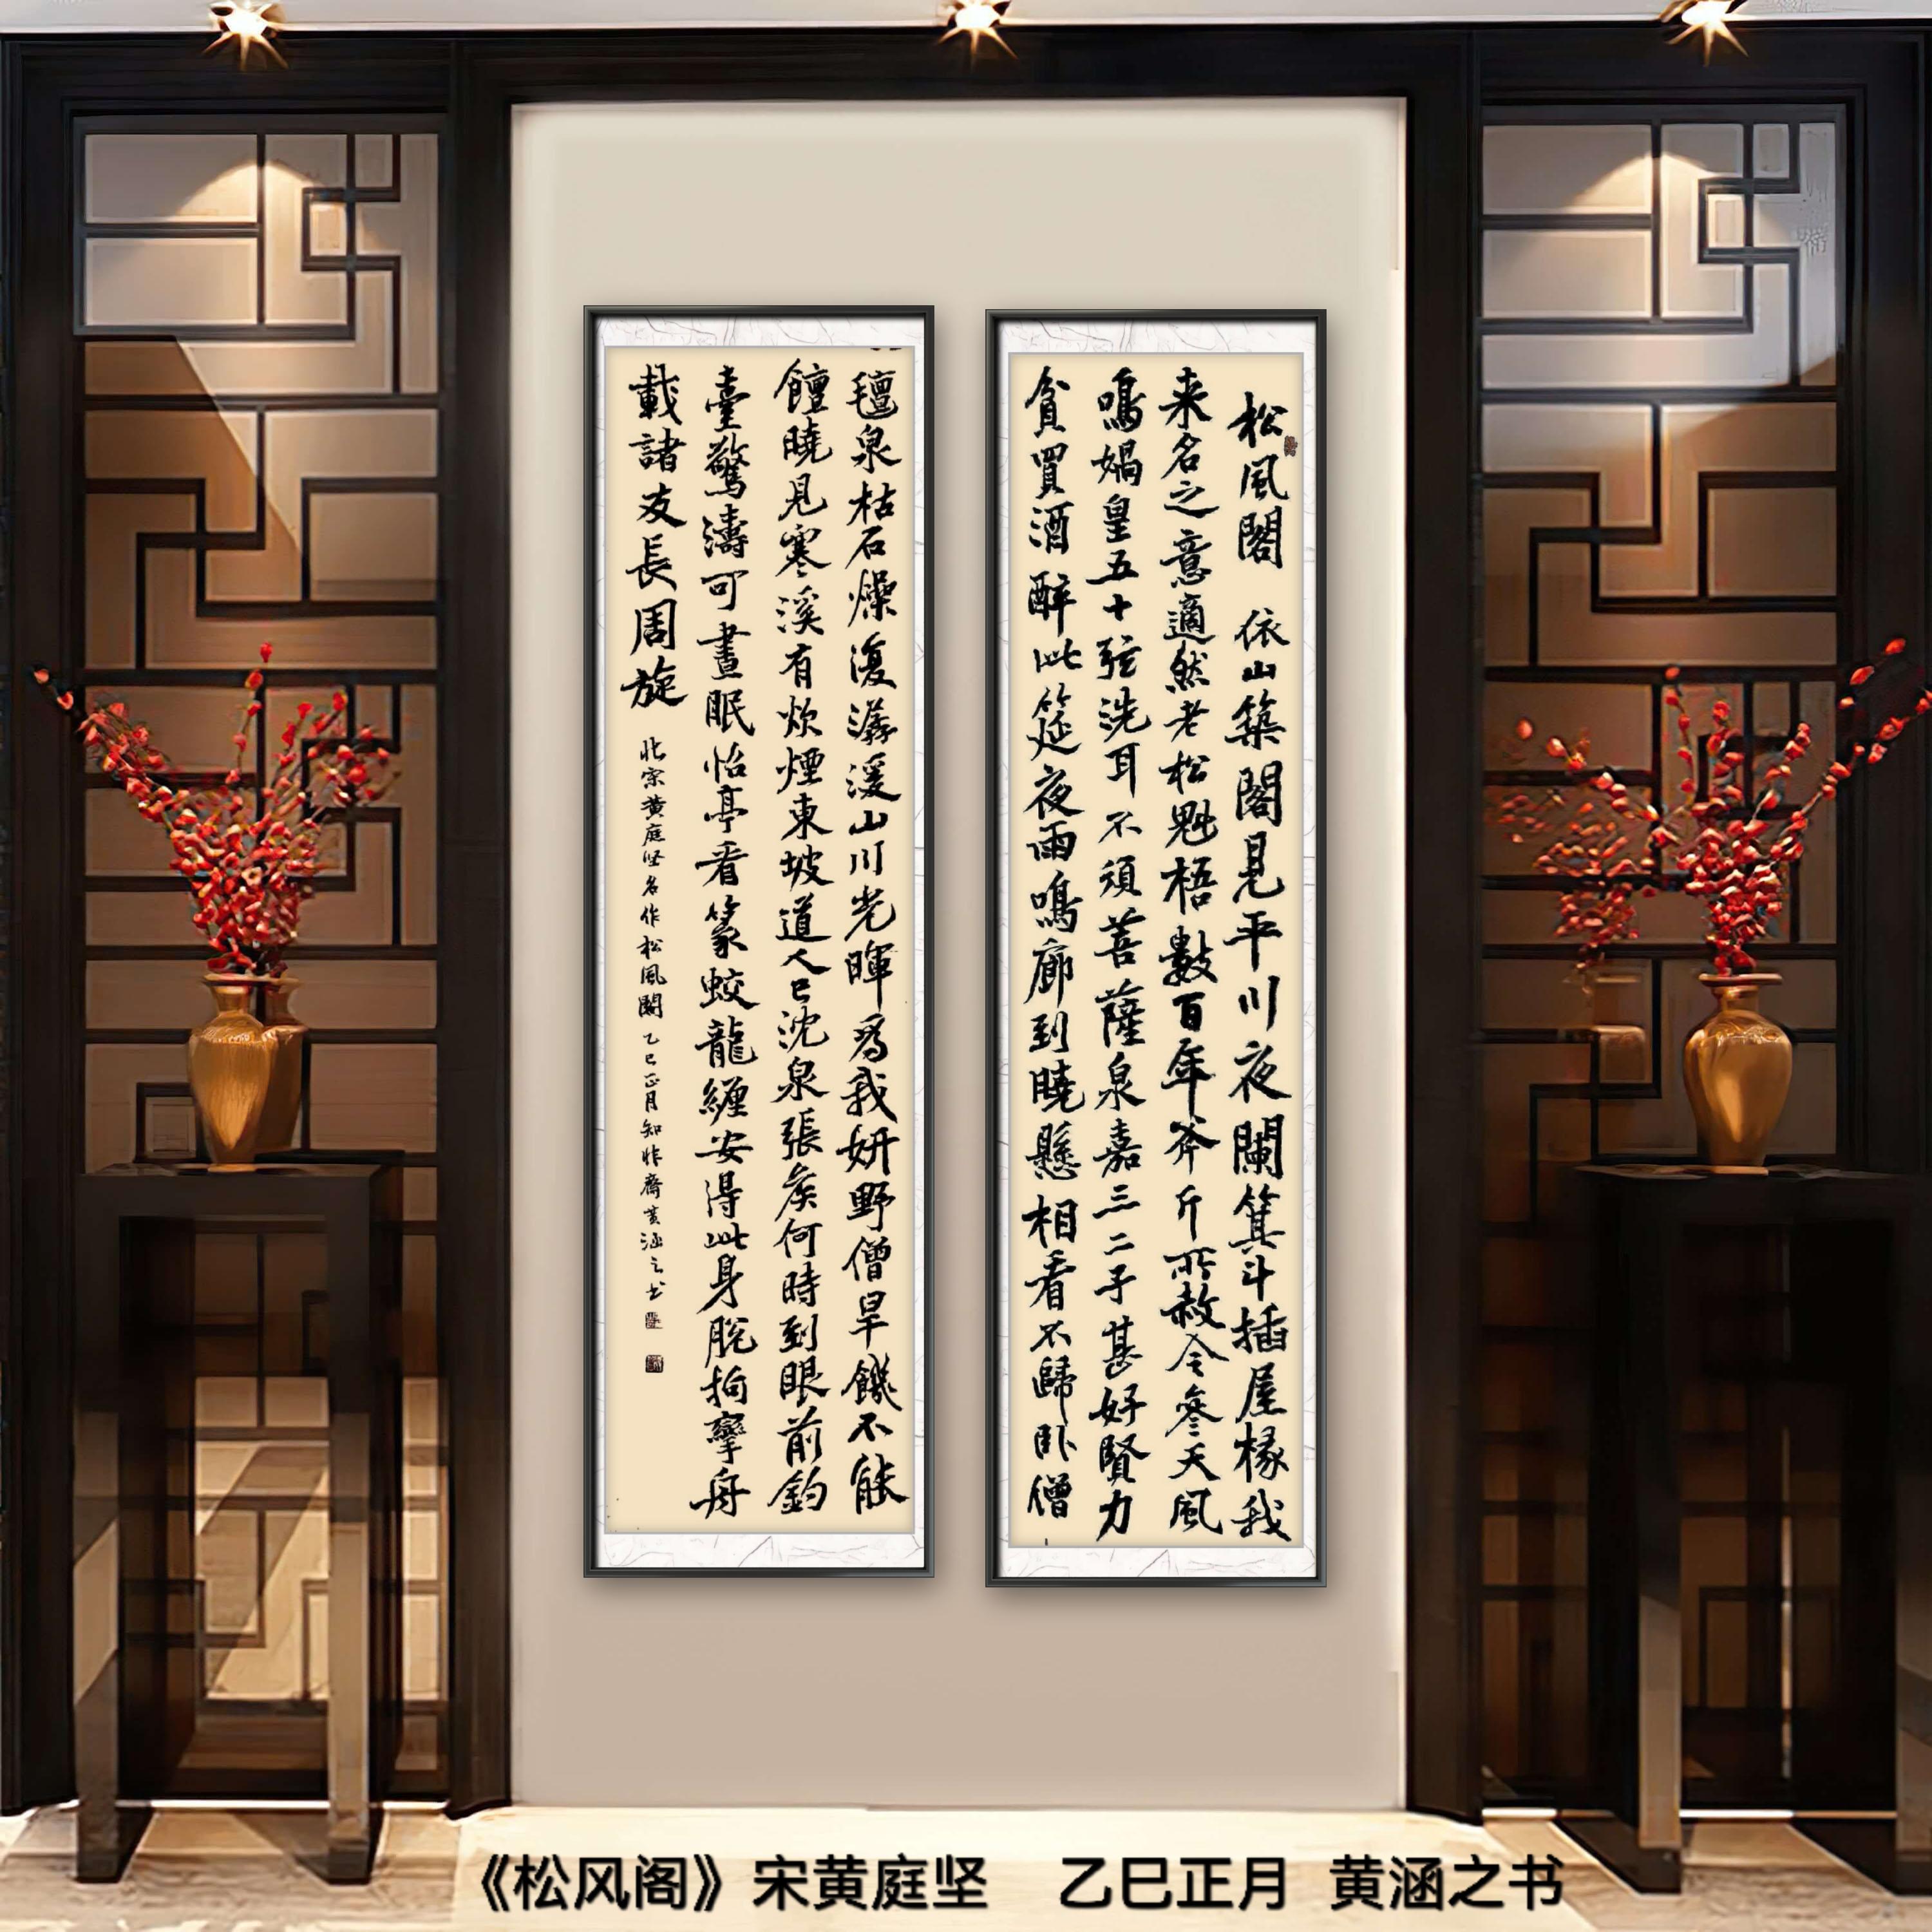 松風閣 依山築閣見平川夜闌箕斗插屋椽我
来名之意適然老松魁梧數百年斧斤所赦今參天風
鳴媧皇五十弦洗耳不須菩薩泉嘉三二子甚好賢力
貧買酒醉此筵夜雨鳴廊到曉懸相看不歸卧僧
氊泉枯石燥復潺湲山川光暉爲我妍野僧旱饑不能
饘曉見寒溪有炊煙東坡道人已沈泉張侯何時到眼前釣
臺驚濤可晝眠怡亭看篆蛟龍纏安得此身脫拘攣舟
載諸友長周旋
北宗黄庭坚名作松風閣 乙巳正月知非齋黄涵之书
《松风阁》宋黄庭坚 乙巳正月 黄涵之书